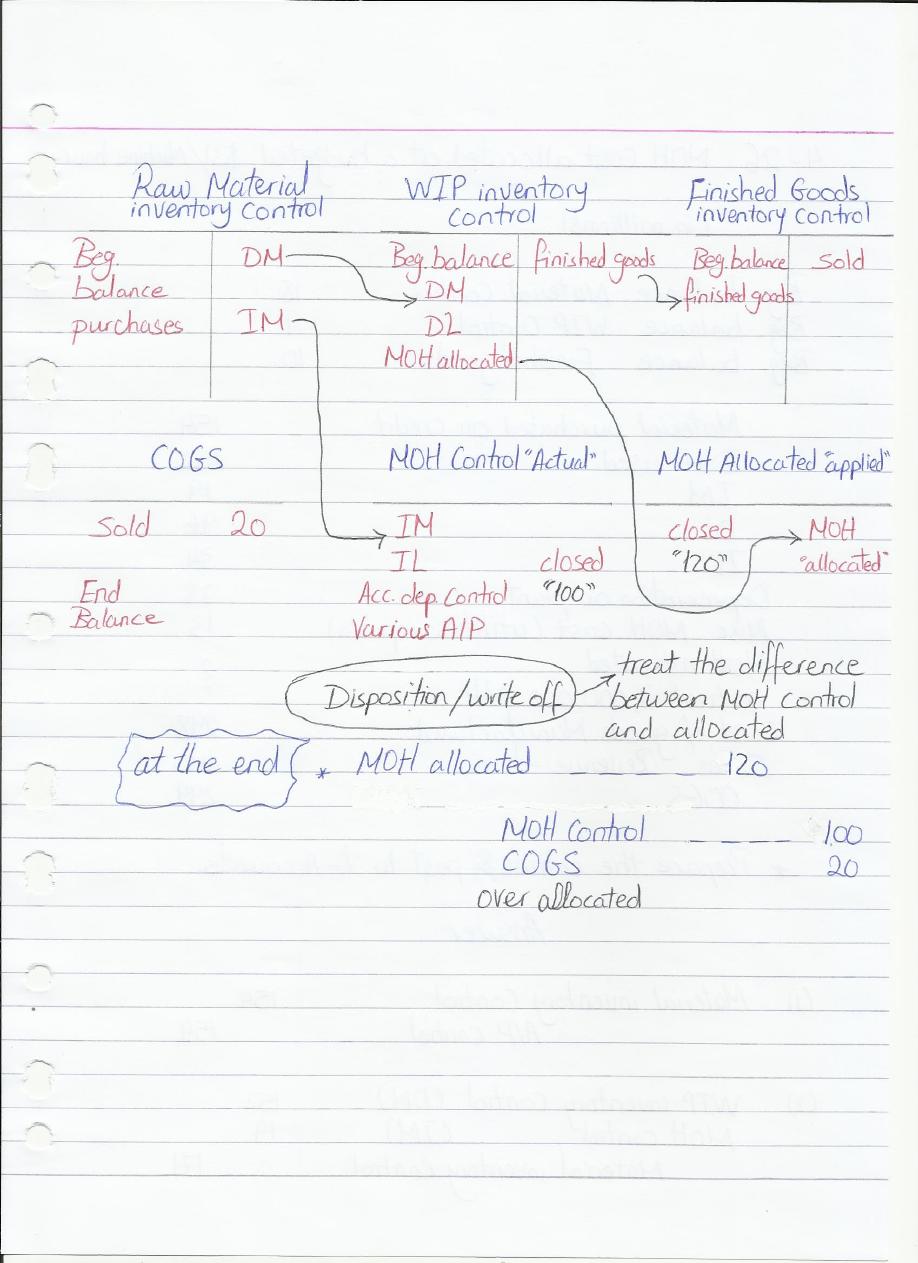 Raw Material
inventory Control
WIP inventory
Control
Finished Goods
inventory Control
Beg. DM Beg. balance finished goods Beg. balance Sold
balance DM finished goods
purchases IM DL
MOH allocated
COGS MOH Control "Actual" MOH Allocated "applied"
Sold 20 IM closed MOH
IL closed "120" "allocated"
End Acc. dep. Control "100"
Balance Various A/P
Disposition/write off treat the difference
between MOH Control
and allocated
at the end * MOH allocated _ _ _ _ 120
MOH Control _ _ _ 100
COGS 20
over allocated